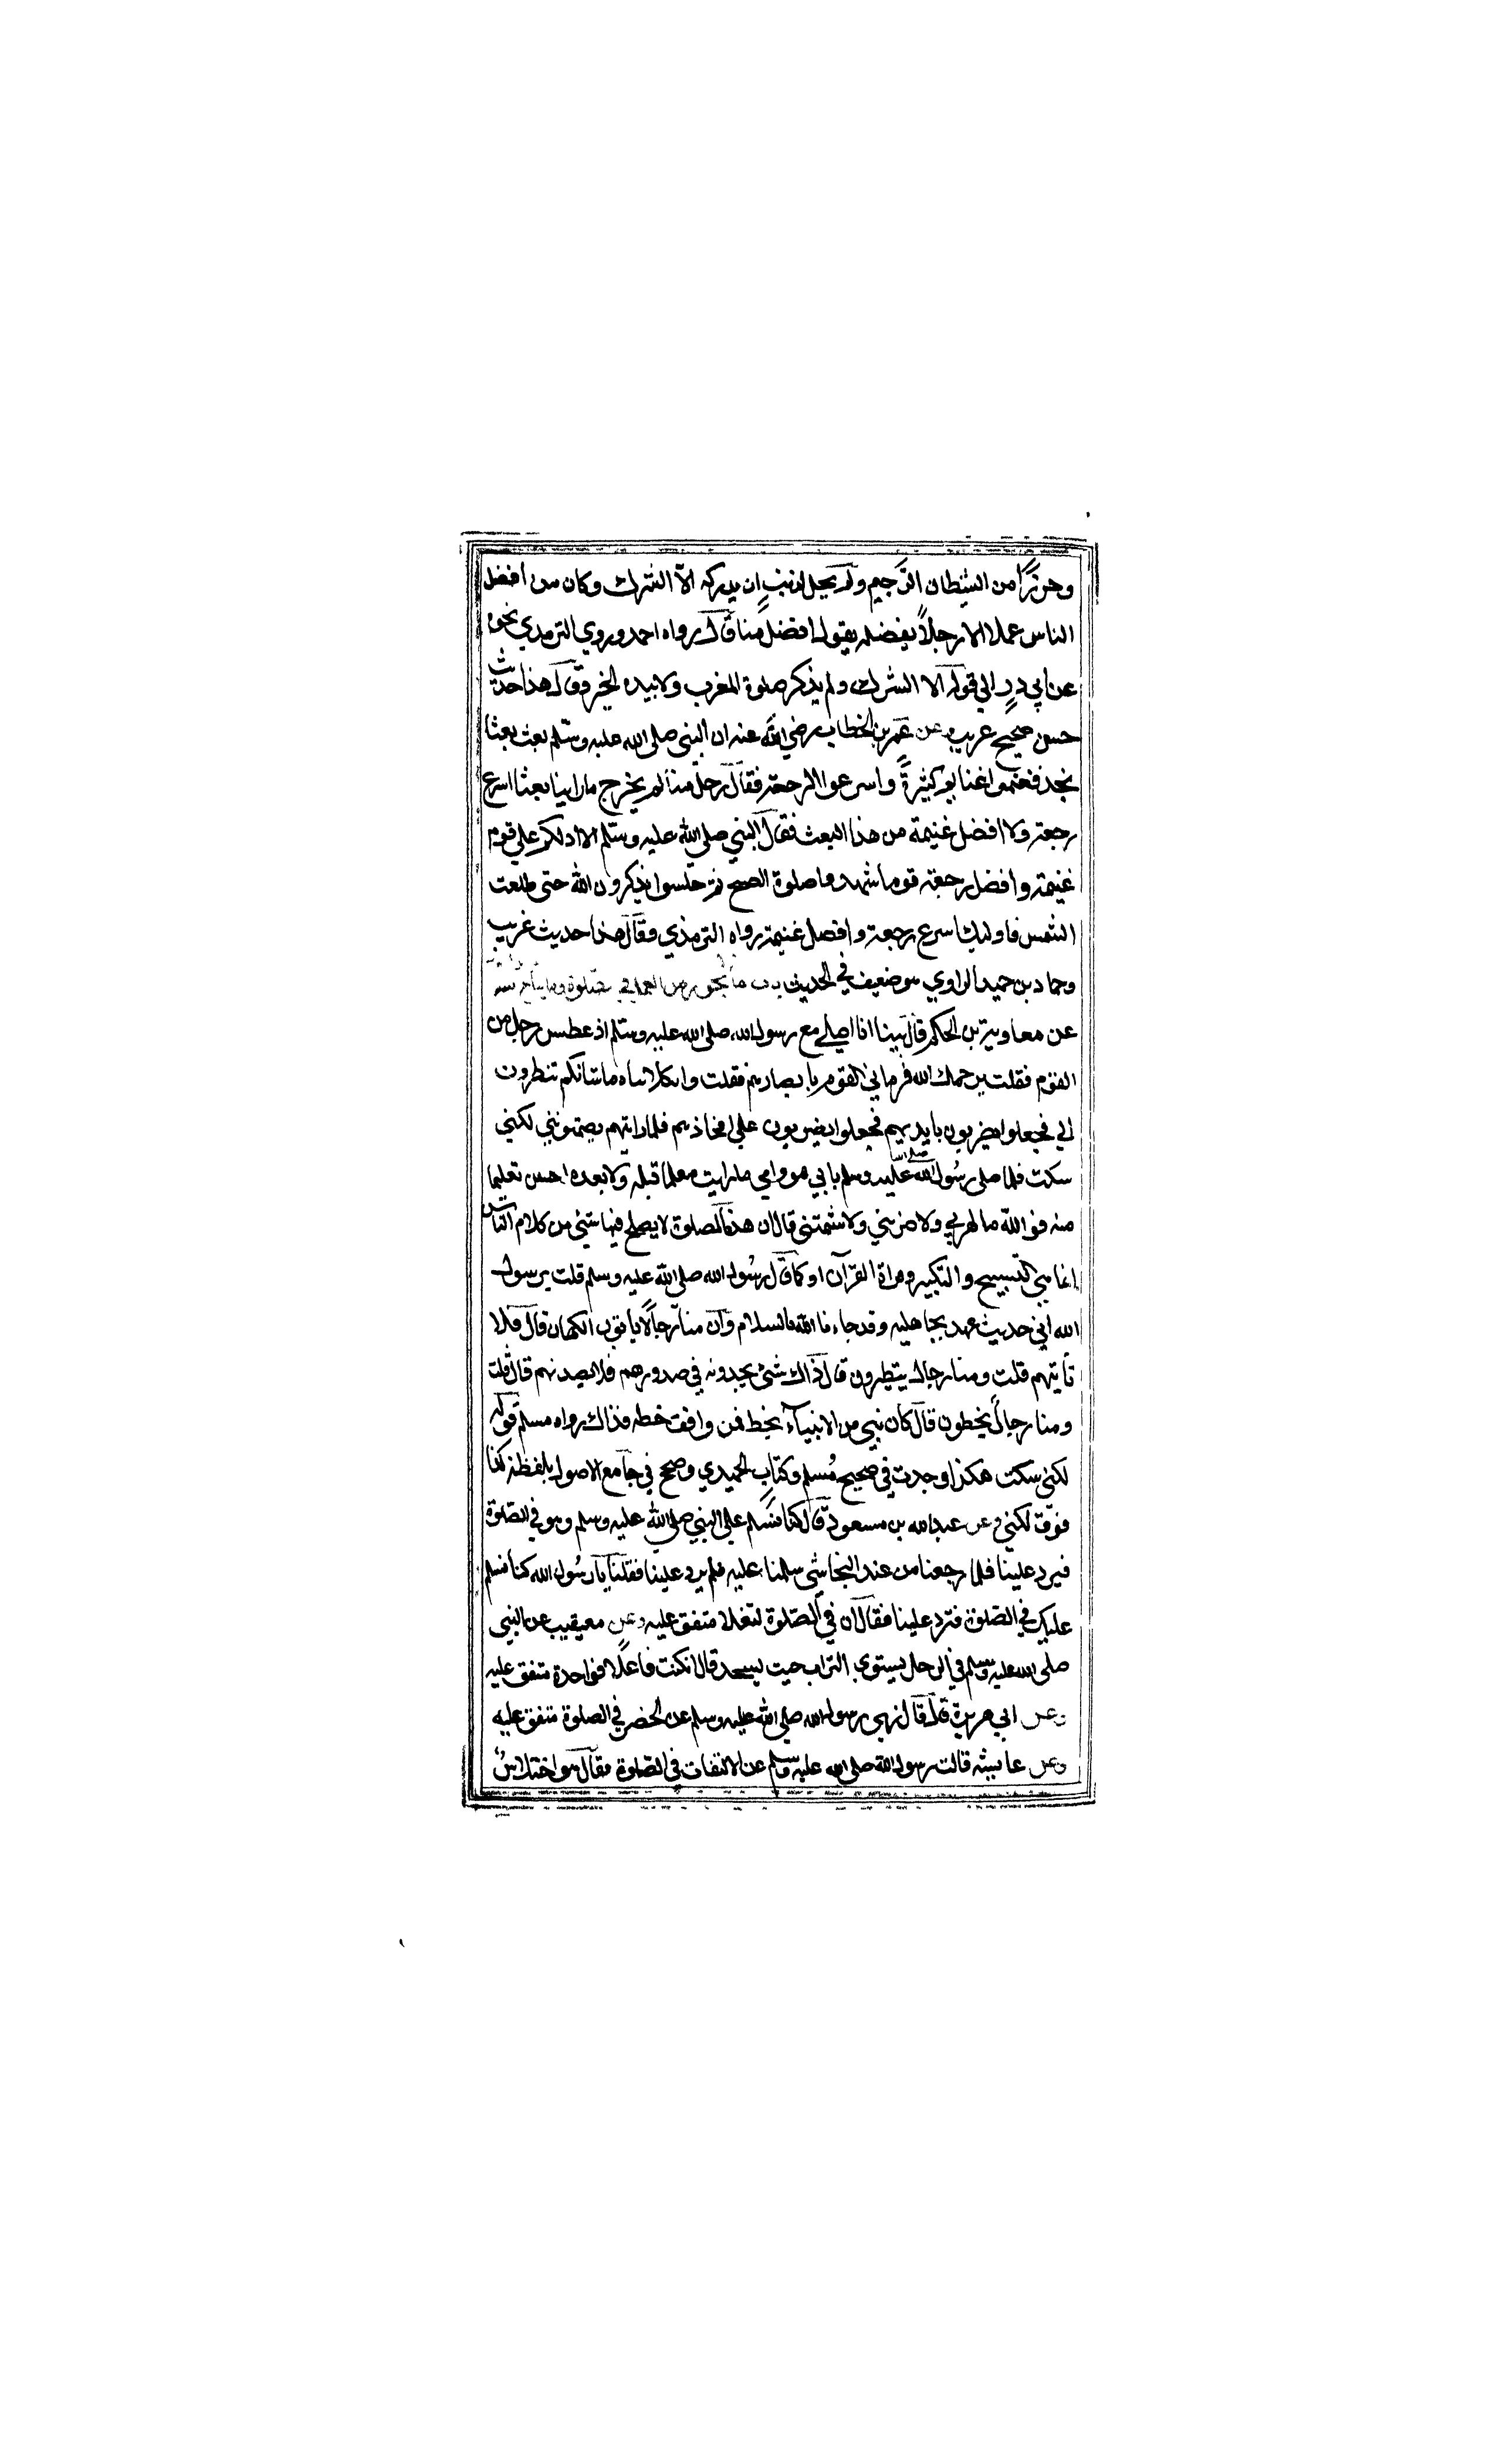 وحرزًا من الشيطان الرَّجيم ولم يحل لذنبٍ ان يدركه الّا الشرك وكان من افضل
الناس عملا الا رجلاً يفضله يقول افضل مما قال رواه احمد وروي الترمذي نحوه
عن ابي ذرٍ الي قوله الا الشرك ولم يذكر صلوة المغرب ولا بيده الخير وقال هذا حديث
حسن صحيح غريب وعن عمر بن الخطاب رضي الله عنه ان النبي صلى الله عليه وسلم بعث بعثا
نجد فغنموا غنايم كثيرةً واسرعوا الرجعة فقال رجل منا لم يخرج ما راينا بعثا اسرع
رجعة ولا افضل غنيمة من هذا البعث فقال النبي صلى الله عليه وسلم الا ادلكم على قوم
غنيمة وافضل رجعة قوما شهدوا صلوة الصبح ثم جلسوا يذكرون الله حتى طلعت
الشمس فاوليك اسرع رجعة وافضل غنيمة رواه الترمذي وقال هذا حديث غريب
وحماد بن حميد الراوي هو ضعيف في الحديث باب ما يجوز من العمل في الصلوة وما يباح منه
عن معاوية بن الحكم قال بينا انا اصلي مع رسول الله صلى الله عليه وسلم اذ عطس رجل من
القوم فقلت يرحمك الله فرماني القوم بابصارهم فقلت واثكل امياه ما شانكم تنظرون
الي فجعلوا يضربون بايديهم فجعلوا يضربون على افخاذهم فلما رايتهم يصمتونني لكني
سكت فلما صلى رسُول الله صلى الله عليه وسلم بابي هو وامي ما رايت معلما قبله ولا بعده احسن تعليما
منه فو الله ما كهرني ولا ضربني ولا شتمني قال ان هذه الصلوة لا يصلح فيها شئ من كلام الناس
انما هي التسبيح والتكبير وقراة القرآن او كما قال رسُول الله صلى الله عليه وسلم قلت يرسول
الله اني حديث عهد بجاهليه وقد جاءنا الله بالسلام وان منا رجالًا ياتون الكهان قال فلا
تأيتهم قلت ومنا رجال يتطيرون قال ذاك شئ يجدونه في صدورهم فلا يصدنهم قال قلت
ومنا رجالٌ يخطون قال كان نبي من الانبيآء يخط فمن وافق خطه فذاك رواه مسلم قوله
لكني سكت هكذا وجدت في صحيح مُسلم وكتاب الحميدي وصح في جامع الاصول بلفظه كذا
فوق لكني وعن عبدالله بن مسعود قال كنا نسلم على النبي صلى الله عليه وسلم وهو في الصلوة
فيرد علينا فلما رجعنا من عند النجاشي سلمنا عليه فلم يرد علينا فقلنا يا رسُول الله كنا نسلم
عليك في الصلوة فترد علينا فقال ان في الصّلوة لشغلا متفق عليه وعن معيقيب عن النبي
صلى الله عليه وسلم في الرجل يسوي التراب حيث يسجد قال ان كنت فاعلًا فواحدة متفق عليه
وعن ابي هريرة قال نهى رسول الله صلى الله عليه وسلم عن الخصر في الصلوة متفق عليه
وعن عايشه قالت رسول الله صلى الله عليه وسلم عن الالتفات في الصّلوة فقال هو اختلاسٌ